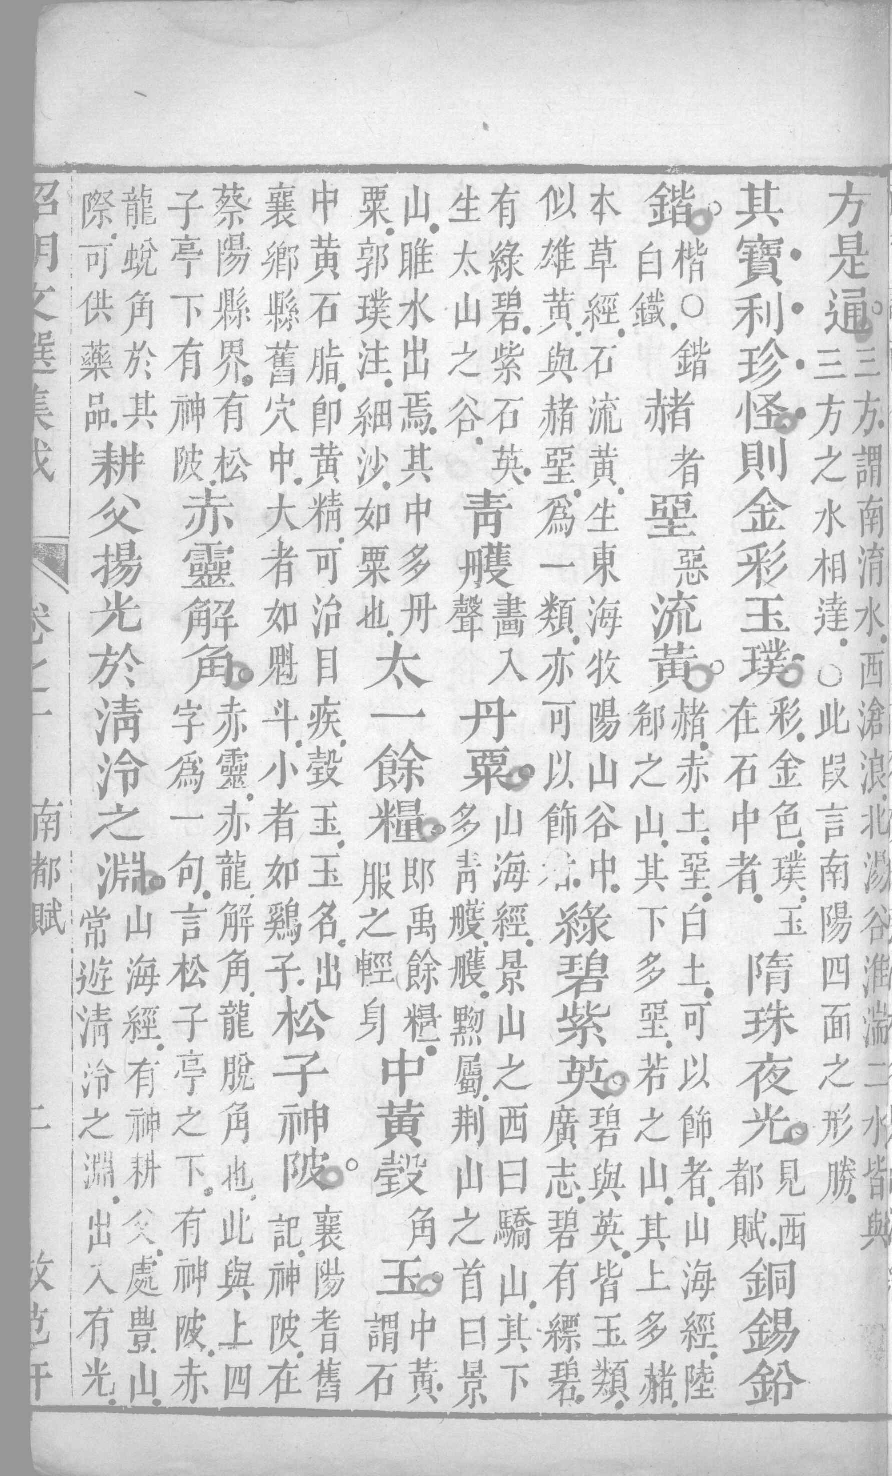 方是通。
三方謂南淯水西滄浪北湯谷淮湍二水皆與
三方之水相達〇此段言南陽四面之形勝
其寶利珍怪則金彩玉璞
彩金色璞玉
在石中者
隋珠夜光
見西
都賦
銅錫鉛
鍇。
楷〇鍇
白鐵
赭
者
堊
惡
流黃。
赭赤土堊白土可以飾者山海經陸
郄之山其下多堊若之山其上多赭
本草經石流黃生東海牧陽山谷中
似雄黃與赭堊爲一類亦可以飾
綠碧紫英
碧與英皆玉類
廣志碧有縹碧
有綠碧紫石英
生太山之谷
靑艧
畫入
聲
丹粟
山海經景山之西曰驕山其下
多靑艧艧黝屬荆山之首曰景
山雎水出焉其中多丹
粟郭璞注細沙如粟也
太一餘糧
卽禹餘糧
服之輕身
中黃瑴
角
玉
中黃
謂石
中黃石脂卽黃精可治目疾瑴玉玉名出
襄鄉縣舊穴中大者如魁斗小者如鷄子
松子神陂。
襄陽耆舊
記神陂在
蔡陽縣界有松
子亭下有神陂
赤靈解角
赤靈赤龍解角龍脫角也此與上四
字爲一句言松子亭之下有神陂赤
龍蛻角於其
際可供藥品
耕父揚光於淸泠之淵
山海經有神耕父處豊山
常遊淸泠之淵出入有光
昭明文選集成
南都賦
二